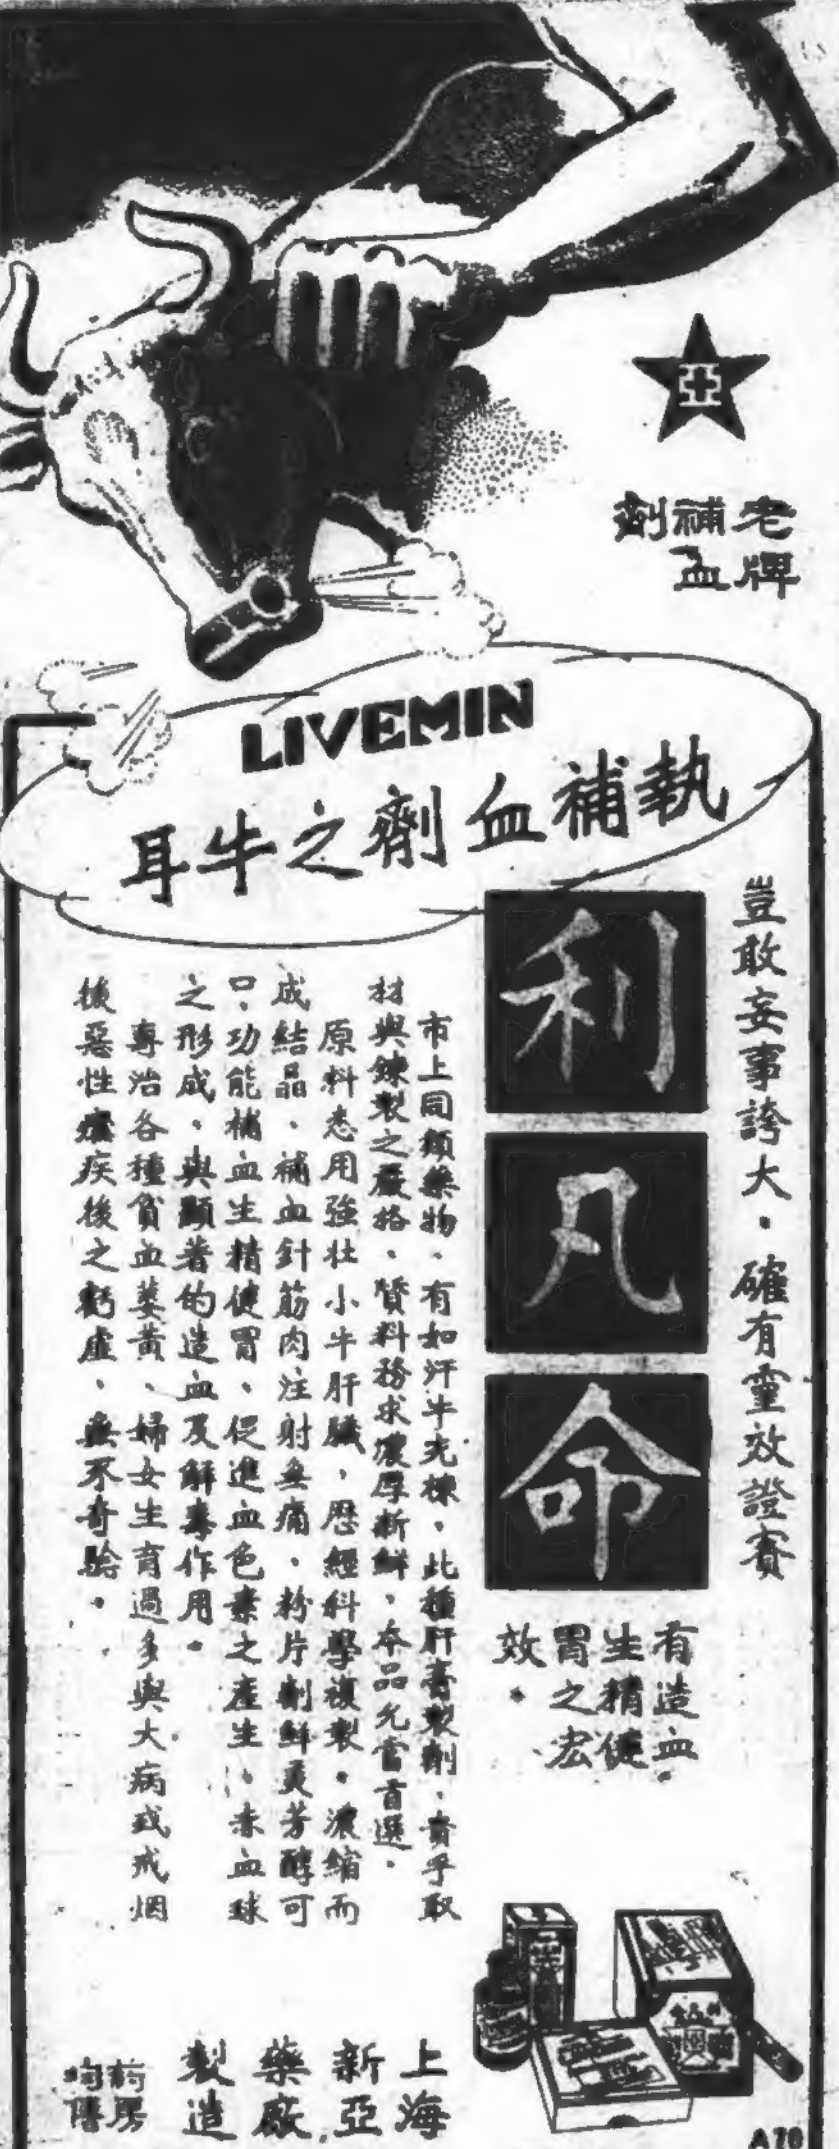 亞
老牌
補血
劑
LIVEMIN
執補血劑之牛耳
豈敢妄事誇大。確有靈效證實
利凡命
有造血。
生精健
胃之宏
效。
市上同類藥物、有如汗牛充棟、此種肝膏製劑、貴乎取
材與鍊製之嚴格、質料務求濃厚新鮮、本品允當首選。
原料悉用強壯小牛肝臟、歷經科學複製。濃縮而
成結晶、補血針筋肉注射無痛、粉片劑鮮美芳醇可
口、功能補血生精健胃、促進血色素之產生、赤血球
之形成、與顯著的造血及解毒作用。
專治各種貧血萎黃、婦女生育過多與大病或戒烟
後惡性瘧疾後之虧虛、無不奇驗。
上海
新亞
藥廠
製造
葯房
均售
A70